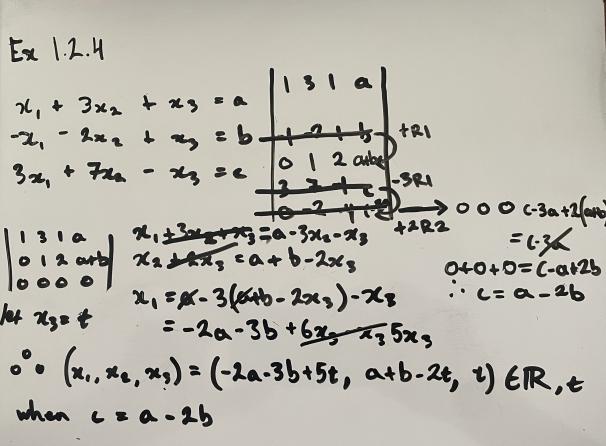 Ex 1.2.4
x₁ + 3x₂ + x₃ = a
-x₁ - 2x₂ + x₃ = b
3x₁ + 7x₂ - x₃ = c
1 3 1 a
-1 -2 1 b +R1
0 1 2 a+b
3 7 -1 c -3R1
0 -2 -4 +2R2 → 0 0 0 c-3a+2(a+b)
= c-3a
0+0+0 = c-a+2b
∴ c = a-2b
1 3 1 a
0 1 2 a+b
0 0 0 0
x₁ + 3x₂ + x₃ = a-3x₂-x₃
x₂ + 2x₃ = a+b-2x₃
x₁ = a-3(a+b-2x₃)-x₃
= -2a-3b+6x₃ x₃ 5x₃
let x₃ = t
∴ (x₁, x₂, x₃) = (-2a-3b+5t, a+b-2t, t) ∈ ℝ, t
when c = a-2b